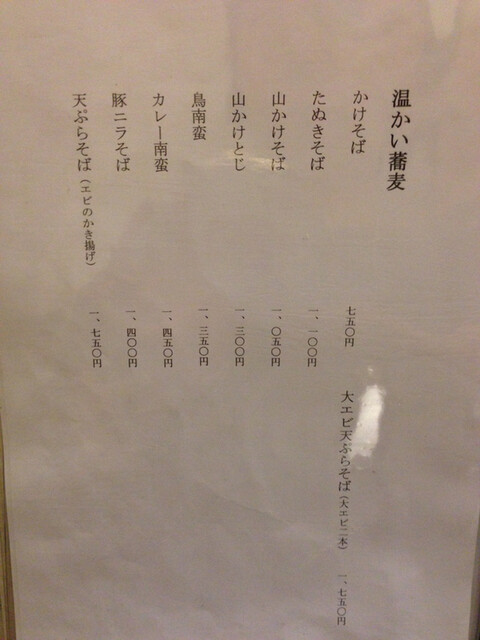 温かい蕎麦
かけそば 七五〇円
たぬきそば 一、一〇〇円
山かけそば 一、〇五〇円
山かけとじ 一、三〇〇円
鳥南蛮 一、三五〇円
カレー南蛮 一、四五〇円
豚ニラそば 一、四〇〇円
天ぷらそば(エビのかき揚げ) 一、七五〇円
大エビ天ぷらそば(大エビ二本) 一、七五〇円